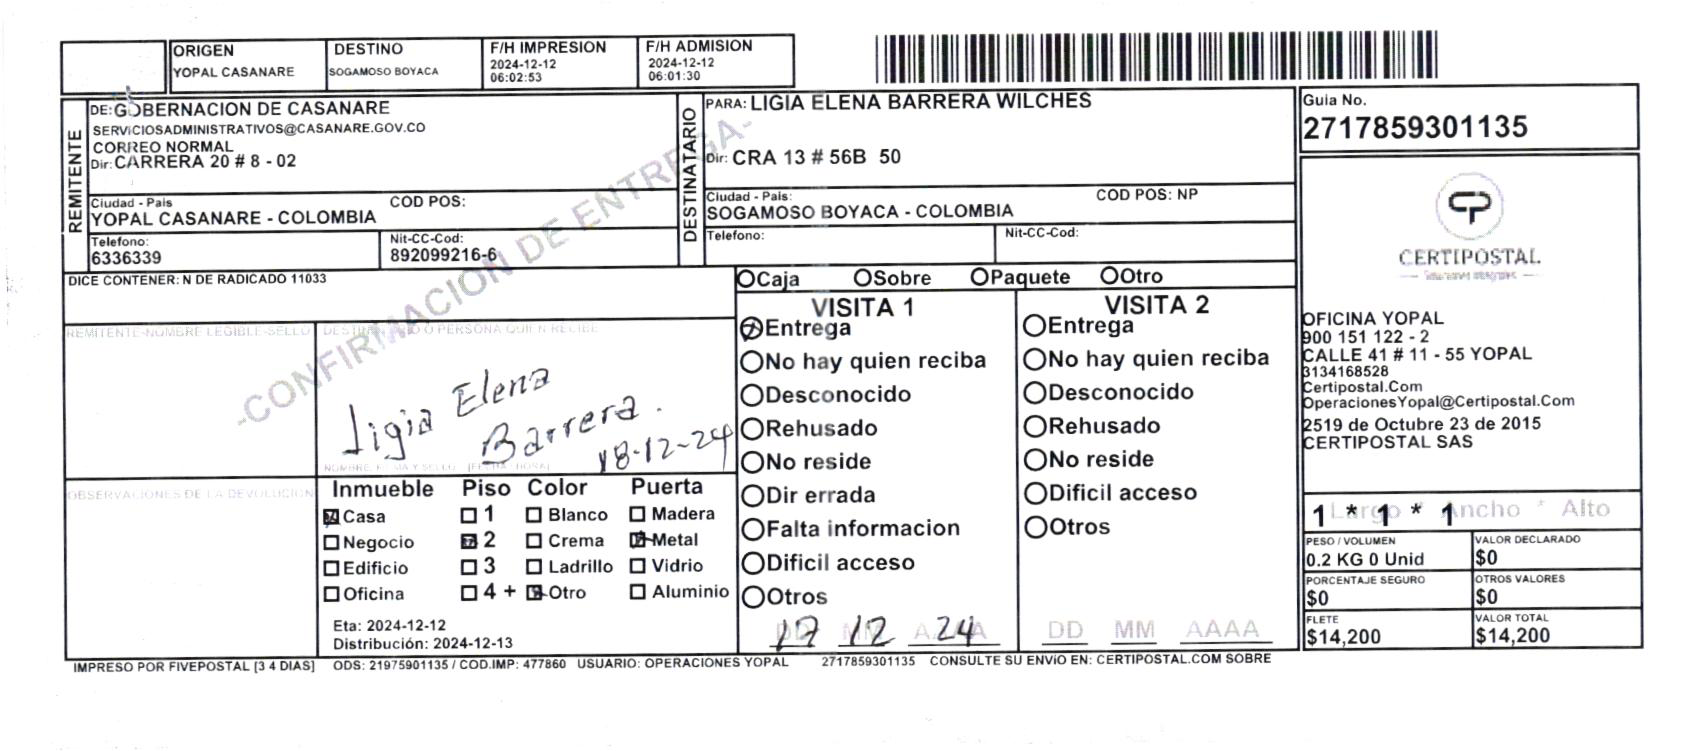 ORIGEN
YOPAL CASANARE
DESTINO
SOGAMOSO BOYACA
F/H IMPRESION
2024-12-12
06:02:53
F/H ADMISION
2024-12-12
06:01:30
REMITENTE
DE: GOBERNACION DE CASANARE
SERVICIOSADMINISTRATIVOS@CASANARE.GOV.CO
CORREO NORMAL
Dir: CARRERA 20 # 8 - 02
Ciudad - Pais
COD POS:
YOPAL CASANARE - COLOMBIA
Telefono:
6336339
Nit-CC-Cod:
892099216-6
DESTINATARIO
PARA: LIGIA ELENA BARRERA WILCHES
Dir: CRA 13 # 56B 50
Ciudad - Pais:
COD POS: NP
SOGAMOSO BOYACA - COLOMBIA
Telefono:
Nit-CC-Cod:
Guia No.
2717859301135
CERTIPOSTAL
OFICINA YOPAL
900 151 122 - 2
CALLE 41 # 11 - 55 YOPAL
3134168528
Certipostal.Com
OperacionesYopal@Certipostal.Com
2519 de Octubre 23 de 2015
CERTIPOSTAL SAS
1 * 1 * 1
Largo * Ancho * Alto
PESO / VOLUMEN
0.2 KG 0 Unid
VALOR DECLARADO
$0
PORCENTAJE SEGURO
$0
OTROS VALORES
$0
FLETE
$14,200
VALOR TOTAL
$14,200
DICE CONTENER: N DE RADICADO 11033
-CONFIRMACION DE ENTREGA-
REMITENTE-NOMBRE LEGIBLE-SELLO
DESTINATARIO O PERSONA QUIEN RECIBE
Ligia Elena
Barrera.
18-12-24
NOMBRE, FIRMA Y SELLO [FECHA / HORA]
OBSERVACIONES DE LA DEVOLUCION
Inmueble Piso Color Puerta
Casa 1 Blanco Madera
Negocio 2 Crema Metal
Edificio 3 Ladrillo Vidrio
Oficina 4 + Otro Aluminio
Eta: 2024-12-12
Distribución: 2024-12-13
Caja Sobre Paquete Otro
VISITA 1
Entrega
No hay quien reciba
Desconocido
Rehusado
No reside
Dir errada
Falta informacion
Dificil acceso
Otros
DD MM AAAA
17 12 24
VISITA 2
Entrega
No hay quien reciba
Desconocido
Rehusado
No reside
Dificil acceso
Otros
DD MM AAAA
IMPRESO POR FIVEPOSTAL [3 4 DIAS] ODS: 21975901135 / COD.IMP: 477860 USUARIO: OPERACIONES YOPAL 2717859301135 CONSULTE SU ENVIO EN: CERTIPOSTAL.COM SOBRE